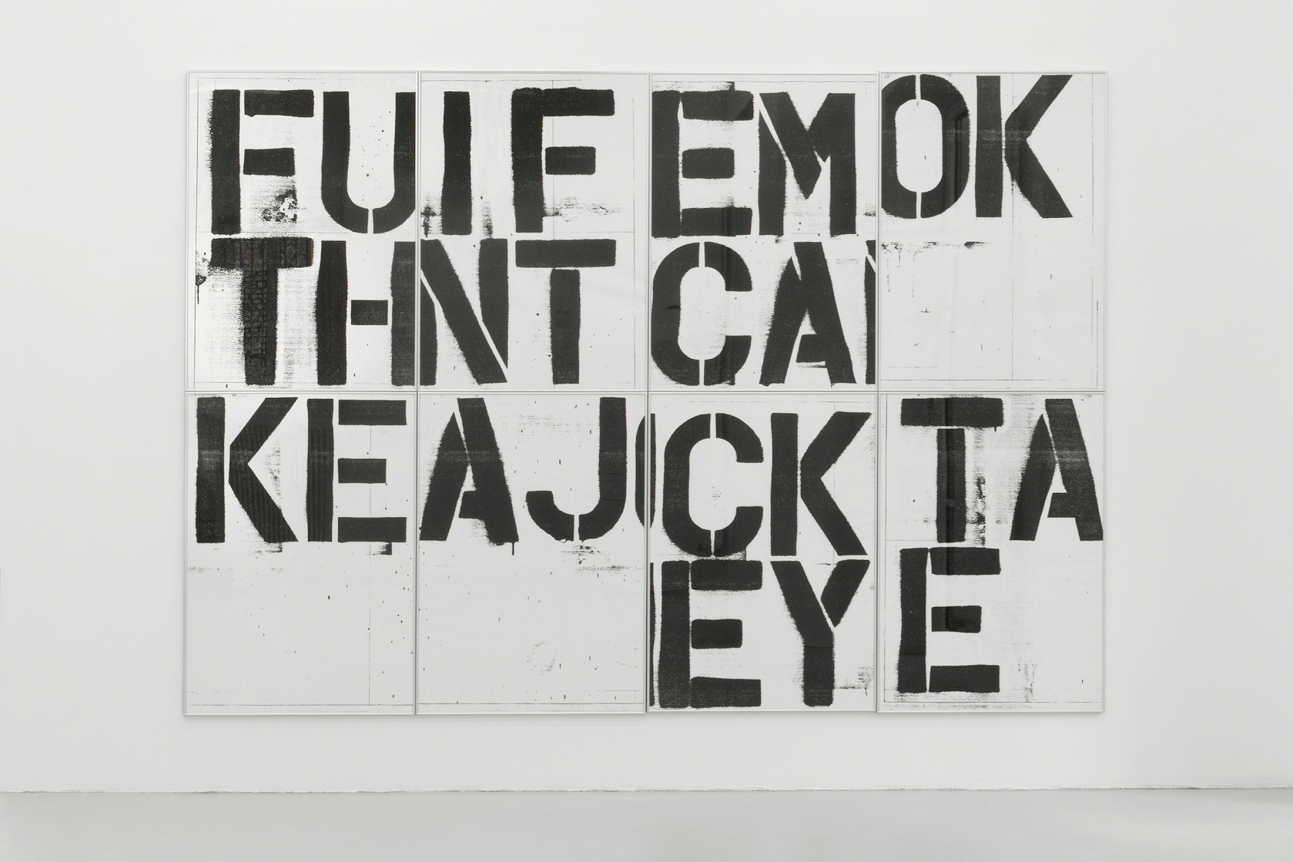 FU I F EM OK
TH NT CA
KE A J CK TA
EY E